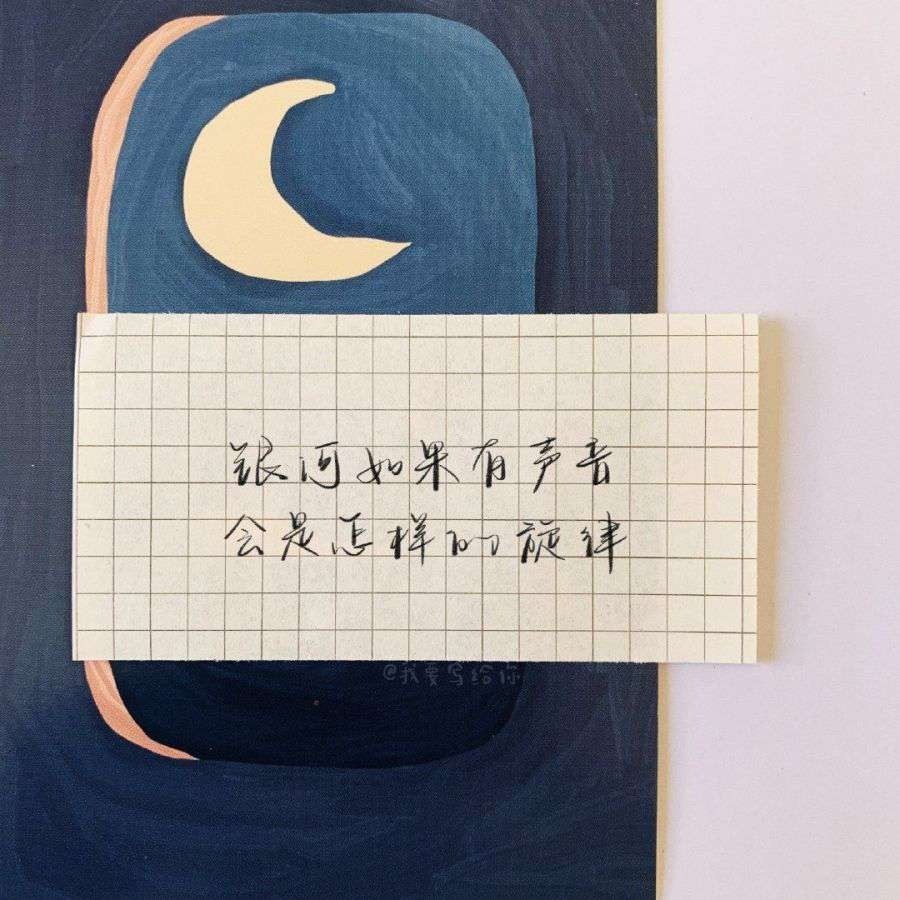 银河如果有声音
会是怎样的旋律
@我爱写给你